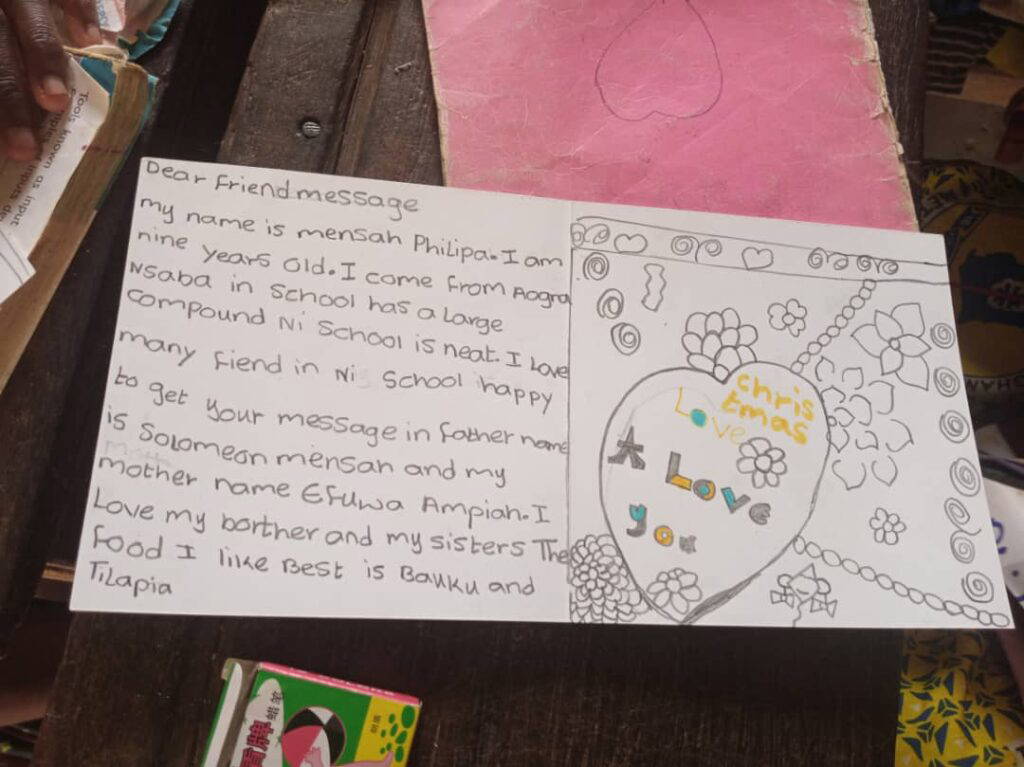 Tools known as input
Dear friend message
my name is mensah Philipa. I am
nine years old. I come from Aogra
Nsaba in School has a large
compound Ni School is neat. I love
many fiend in Ni School happy
to get your message in father name
is Solomeon mensah and my
mother name Efuwa Ampiah. I
Love my borther and my sisters The
food I like Best is Bauku and
Tilapia
chris
tmas
Love
A Love
you